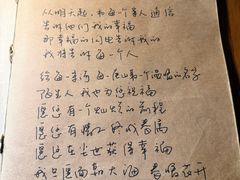 从明天起，和每一个亲人通信
告诉他们我的幸福
那幸福的闪电告诉我的
我将告诉每一个人
给每一条河每一座山取一个温暖的名字
陌生人，我也为你祝福
愿你有一个灿烂的前程
愿你有情人终成眷属
愿你在尘世获得幸福
我只愿面朝大海，春暖花开